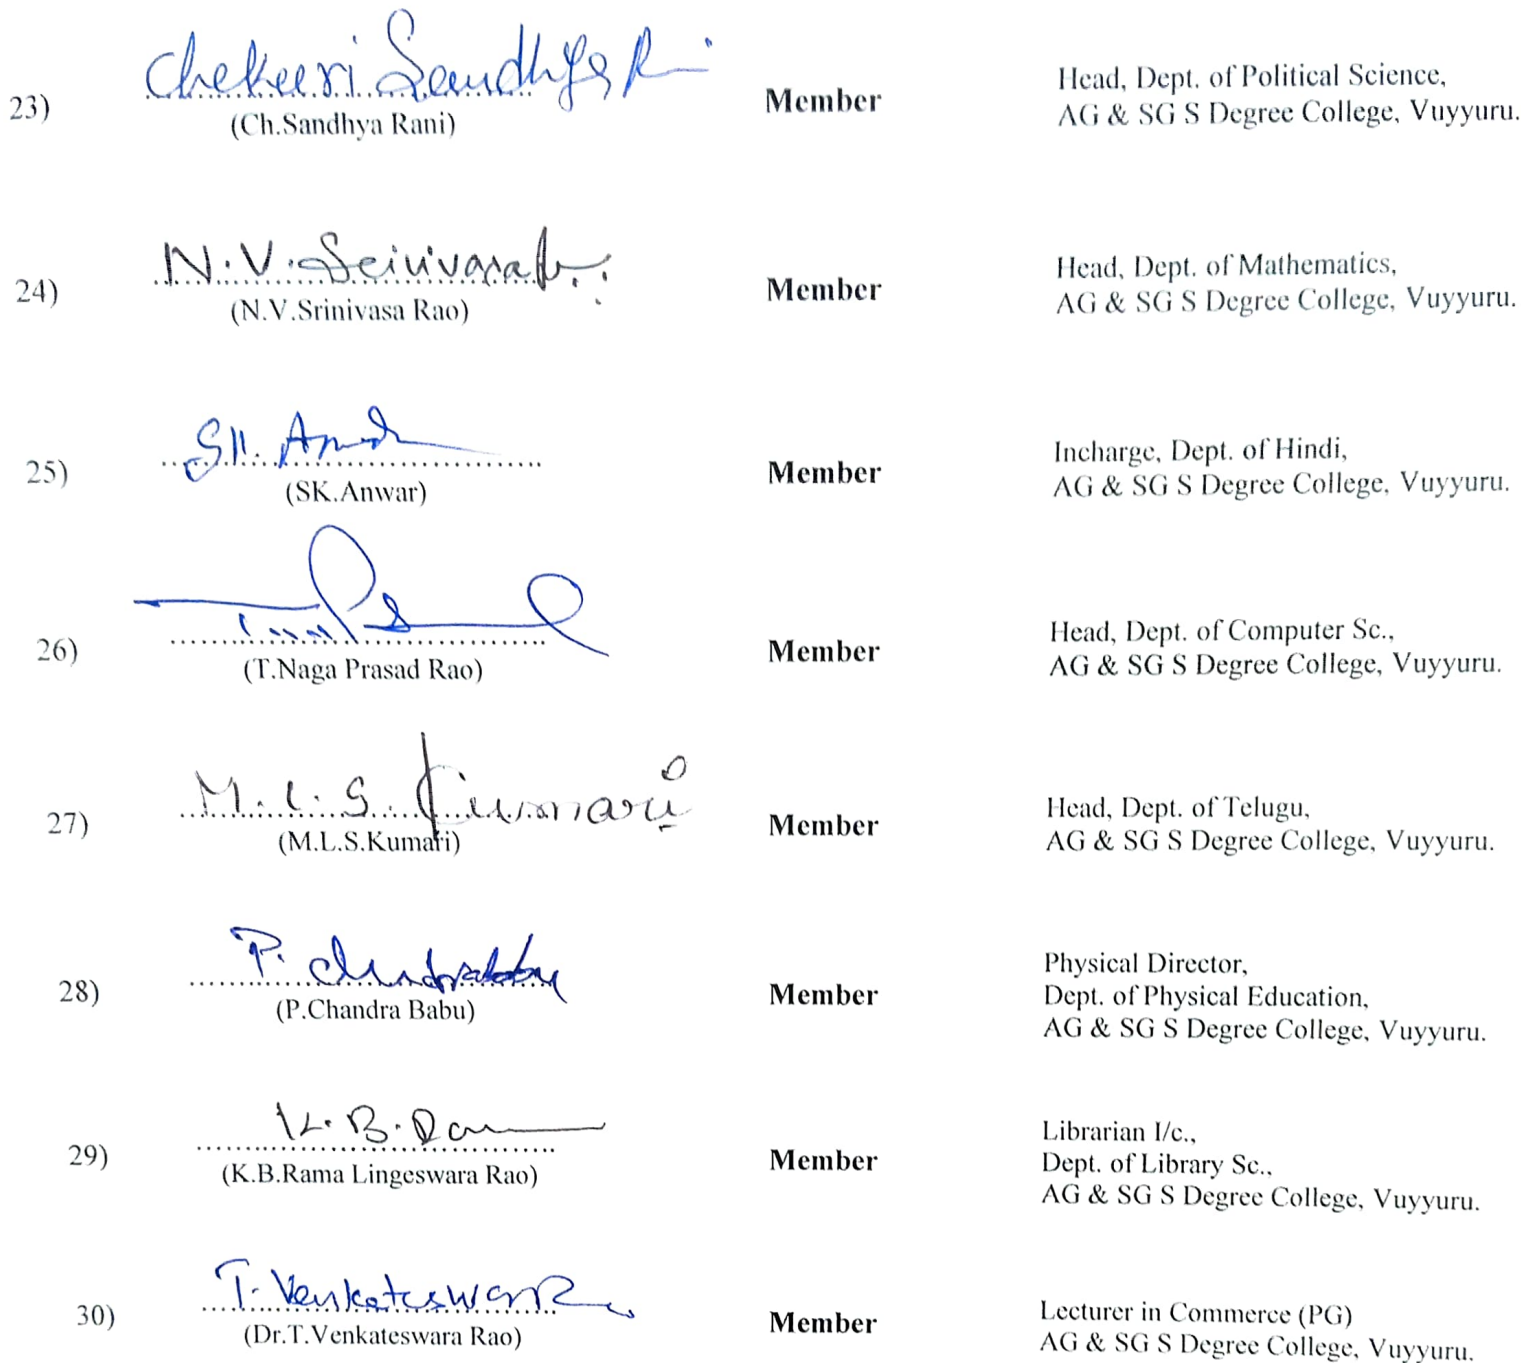 Chekuri Sandhya R
23)
(Ch.Sandhya Rani)
Member
Head, Dept. of Political Science,
AG & SG S Degree College, Vuyyuru.
N.V. Srinivasa
24)
(N.V.Srinivasa Rao)
Member
Head, Dept. of Mathematics,
AG & SG S Degree College, Vuyyuru.
25)
(SK.Anwar)
Member
Incharge, Dept. of Hindi,
AG & SG S Degree College, Vuyyuru.
26)
(T.Naga Prasad Rao)
Member
Head, Dept. of Computer Sc.,
AG & SG S Degree College, Vuyyuru.
M.L.S. Kumari
27)
(M.L.S.Kumari)
Member
Head, Dept. of Telugu,
AG & SG S Degree College, Vuyyuru.
P. Chandrababu
28)
(P.Chandra Babu)
Member
Physical Director,
Dept. of Physical Education,
AG & SG S Degree College, Vuyyuru.
K.B.Ra
29)
(K.B.Rama Lingeswara Rao)
Member
Librarian I/c.,
Dept. of Library Sc.,
AG & SG S Degree College, Vuyyuru.
T. Venkateswara R
30)
(Dr.T.Venkateswara Rao)
Member
Lecturer in Commerce (PG)
AG & SG S Degree College, Vuyyuru.